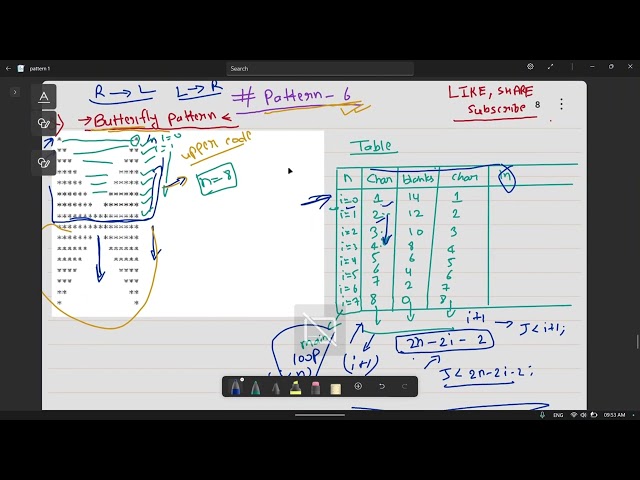 pattern 1
Search
R → L    L → R
# Pattern - 6
LIKE, SHARE
Subscribe
8
→ Butterfly pattern ←
i=0
upper code
n=8
Table
n Char blanks char n
i=0 1 14 1
i=1 2 12 2
i=2 3 10 3
i=3 4 8 4
i=4 5 6 5
i=5 6 4 6
i=6 7 2 7
i=7 8 0 8
main
loop
(n)
(i+1)
i+1
→ J<i+1;
2n-2i-2
J< 2n-2i-2;
ENG
09:33 AM